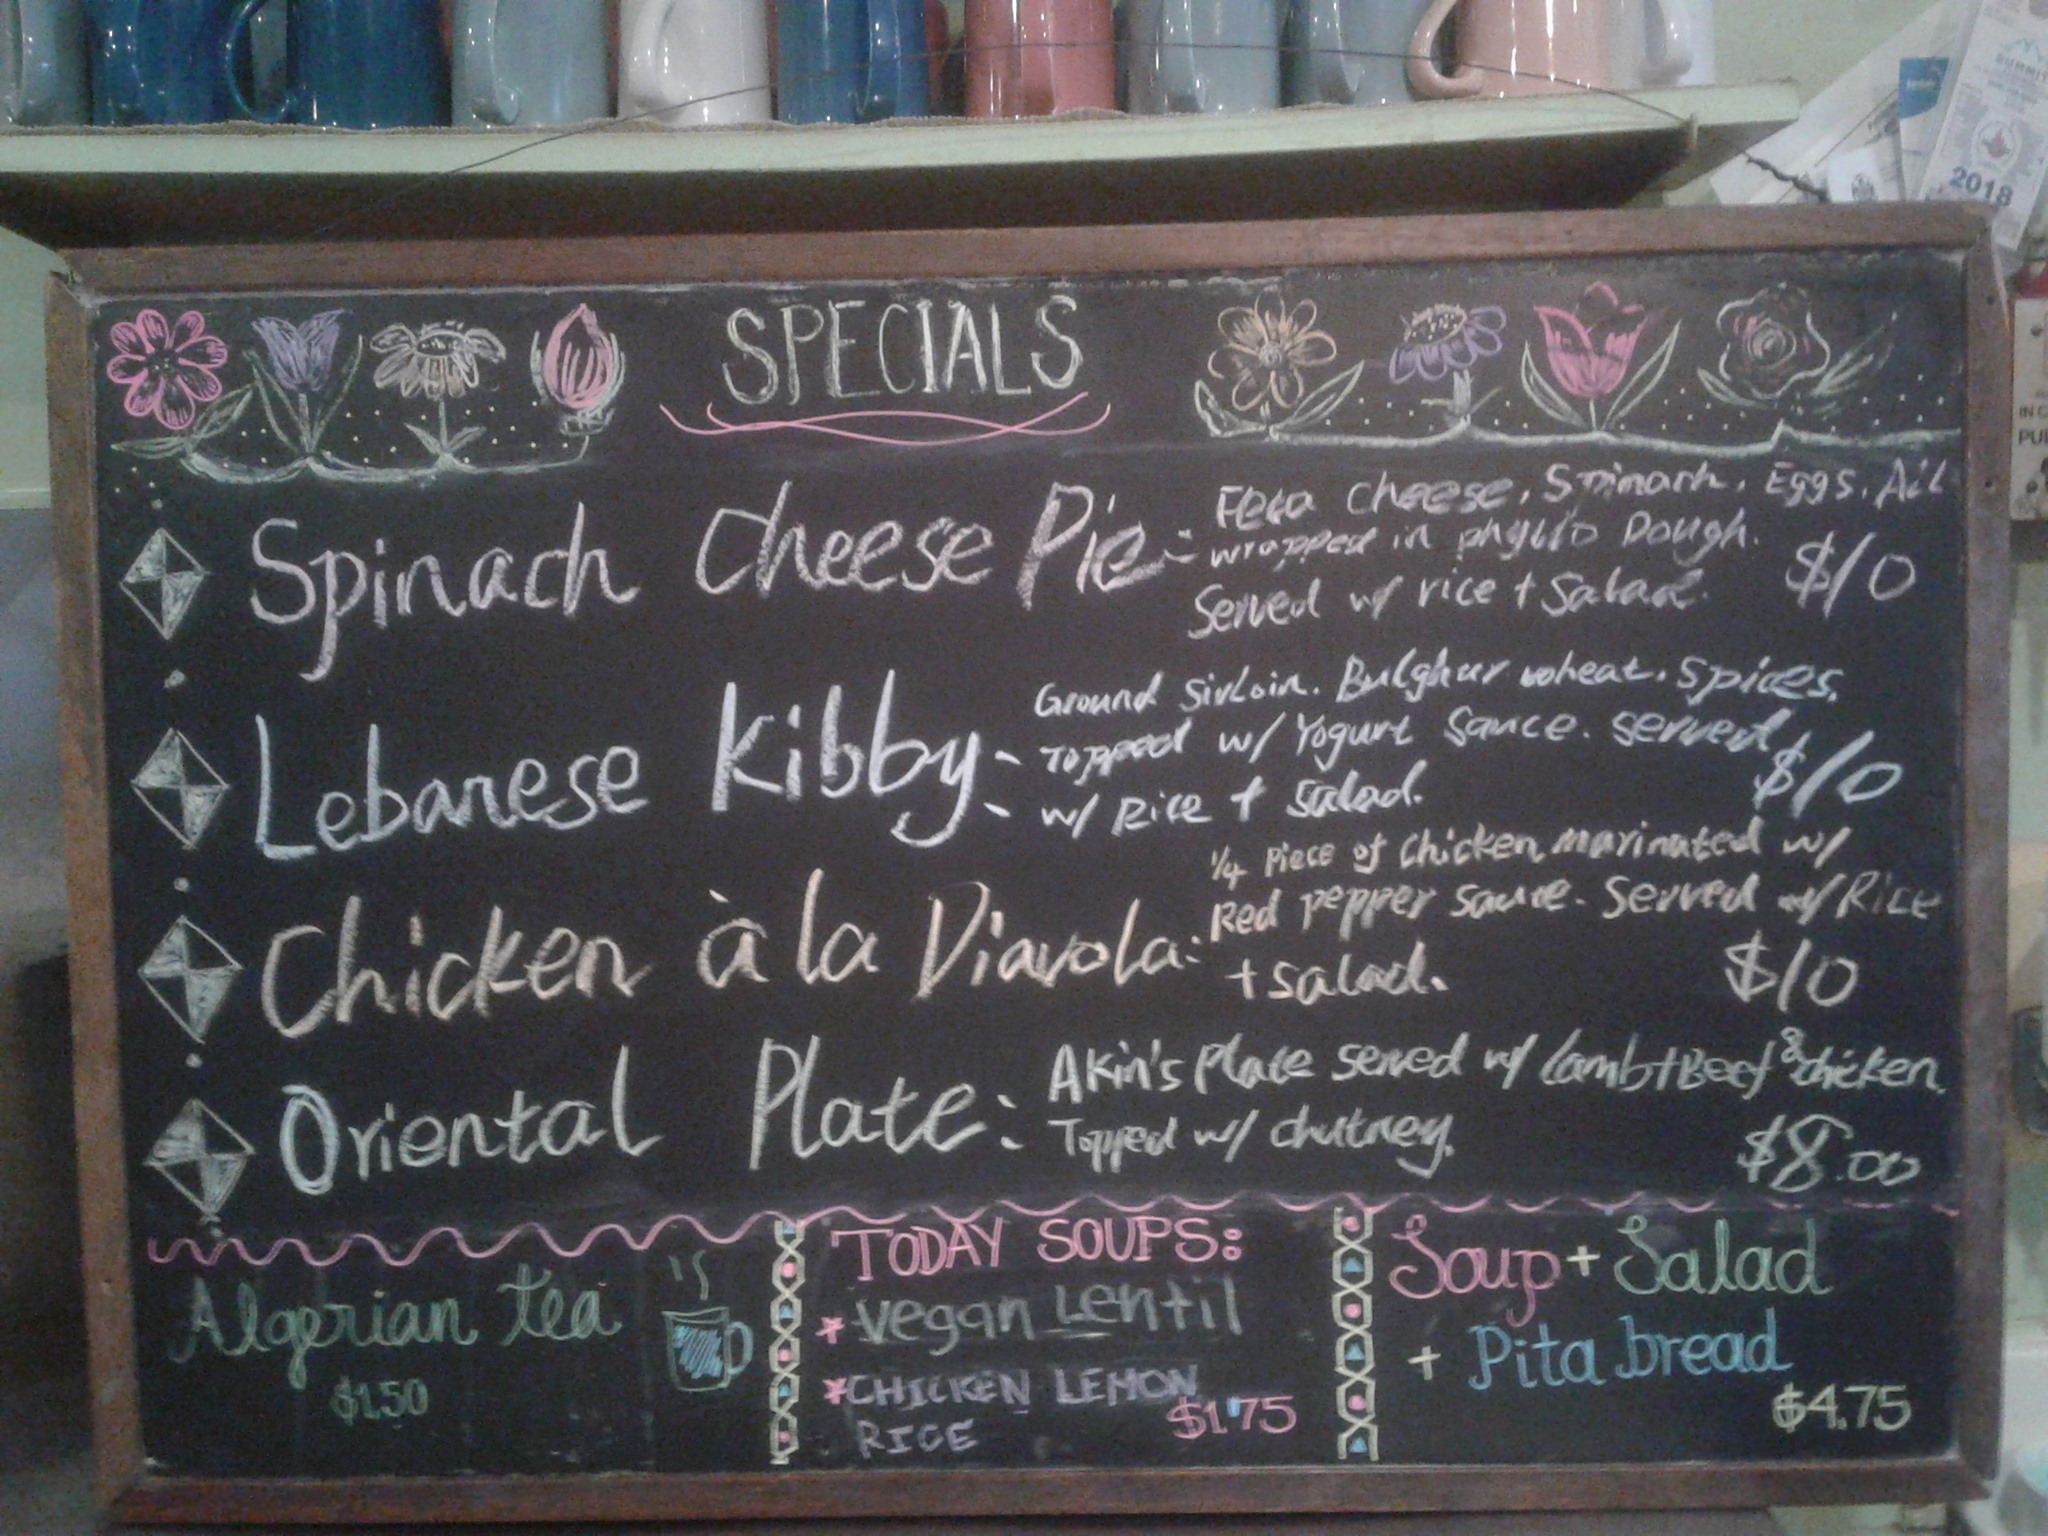 SUMMIT
2018
IN C
PU
SPECIALS
Spinach Cheese Pie:- Feta Cheese, Spinach, Eggs, All
wrapped in phyllo Dough.
Served w/ rice + Salad. $10
Lebanese Kibby:- Ground Sirloin. Bulghur wheat. Spices,
Topped w/ Yogurt Sauce. Served
w/ Rice + Salad. $10
Chicken à la Diavola: 1/4 Piece of Chicken marinated w/
Red pepper sauce. Served w/ Rice
+ Salad. $10
Oriental Plate: Akin's Place served w/ Lamb+Beef & chicken.
Topped w/ chutney. $8.00
Algerian tea
$1.50
TODAY SOUPS:
* Vegan Lentil
*CHICKEN LEMON
RICE $1.75
Soup + Salad
+ Pita bread
$4.75